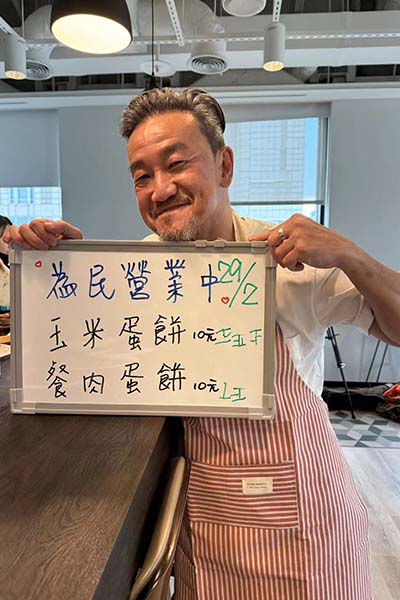 為民營業中 29/2
玉米蛋餅 10元 正正下
餐肉蛋餅 10元